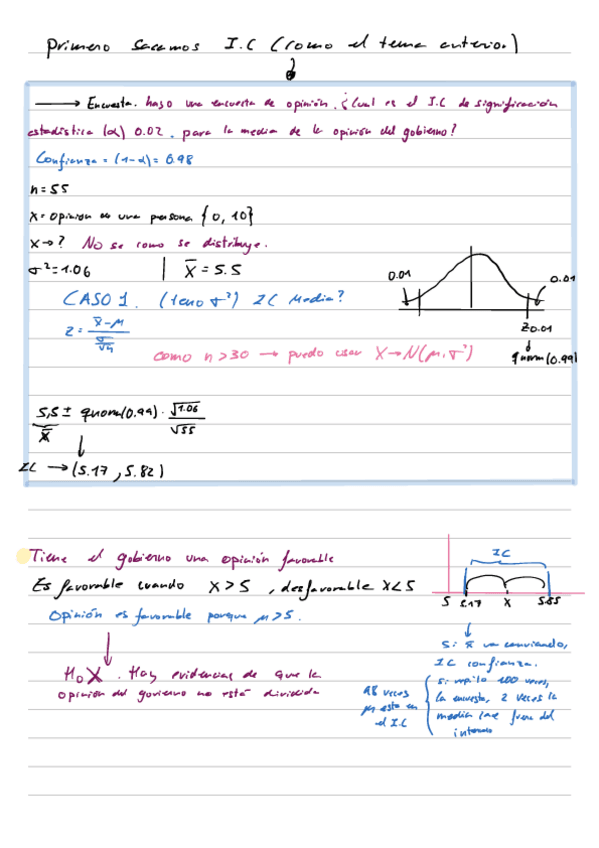 Primero sacamos I.C (como el tema anterior)
→ Encuesta. hago una encuesta de opinión. ¿Cual es el I.C de significación
estadística (α) 0.02. para la media de la opinión del gobierno?
Confianza = (1-α) = 0.98
n = 55
X = opinion de una persona {0, 10}
X → ? No se como se distribuye.
σ² = 1.06 | X̄ = 5.5
CASO 1. (tengo σ²) IC Media?
0.01
0.01
Z0.01
qnorm(0.99)
Z = X̄-μ / σ/√n
como n > 30 → puedo usar X → N(μ, σ²)
5,5 ± qnorm(0.99) · √1.06 / √55
X̄
IC → (5.17, 5.82)
Tiene el gobierno una opinión favorable
Es favorable cuando X > 5, desfavorable X < 5
Opinión es favorable porque μ > 5.
IC
5 5.17 X 5.85
H₀ X. Hay evidencias de que la
opinion del govierno no está dividida
Si x̄ va cambiando,
IC confianza.
Si repito 100 veces,
la encuesta, 2 veces la
media cae fuera del
intervalo
98 veces
μ esta en
el I.C